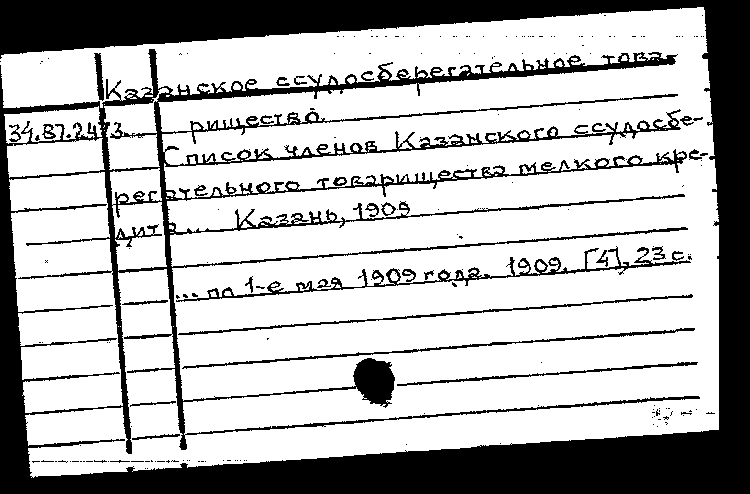 Казанское ссудосберегательное това-
34.87.2473 рищество.
Список членов Казанского ссудосбе-
регательного товарищества мелкого кре-
дита... Казань, 1909
... по 1-е мая 1909 года. 1909. [4], 23 с.